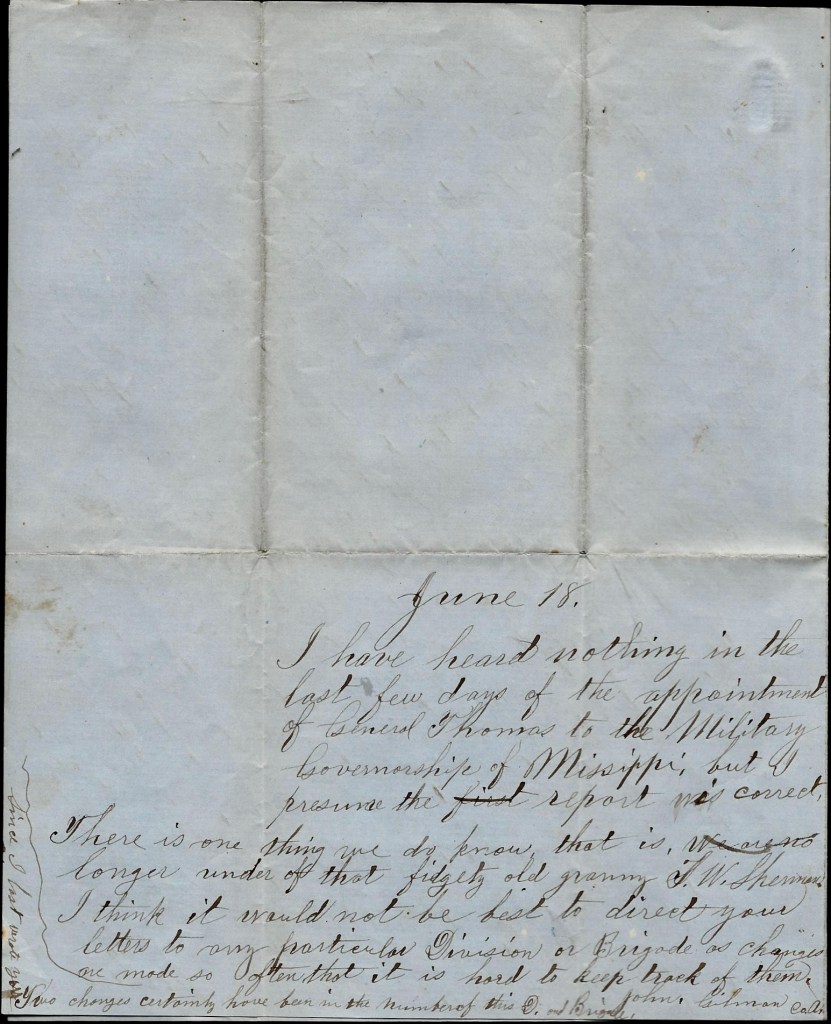 June 18.
I have heard nothing in the
last few days of the appointment
of General Thomas to the Military
Governorship of Missippi, but I
presume the first report was correct,
There is one thing we do know, that is, We are no
longer under of that fidgety old granny T. W. Sherman.
I think it would not be best to direct your
letters to any particular Division or Brigade as changes
are made so often that it is hard to keep track of them.
Two changes certainly have been in the number of this D. and Brigade,
since I last wrote you
John. Gilman Co. A.